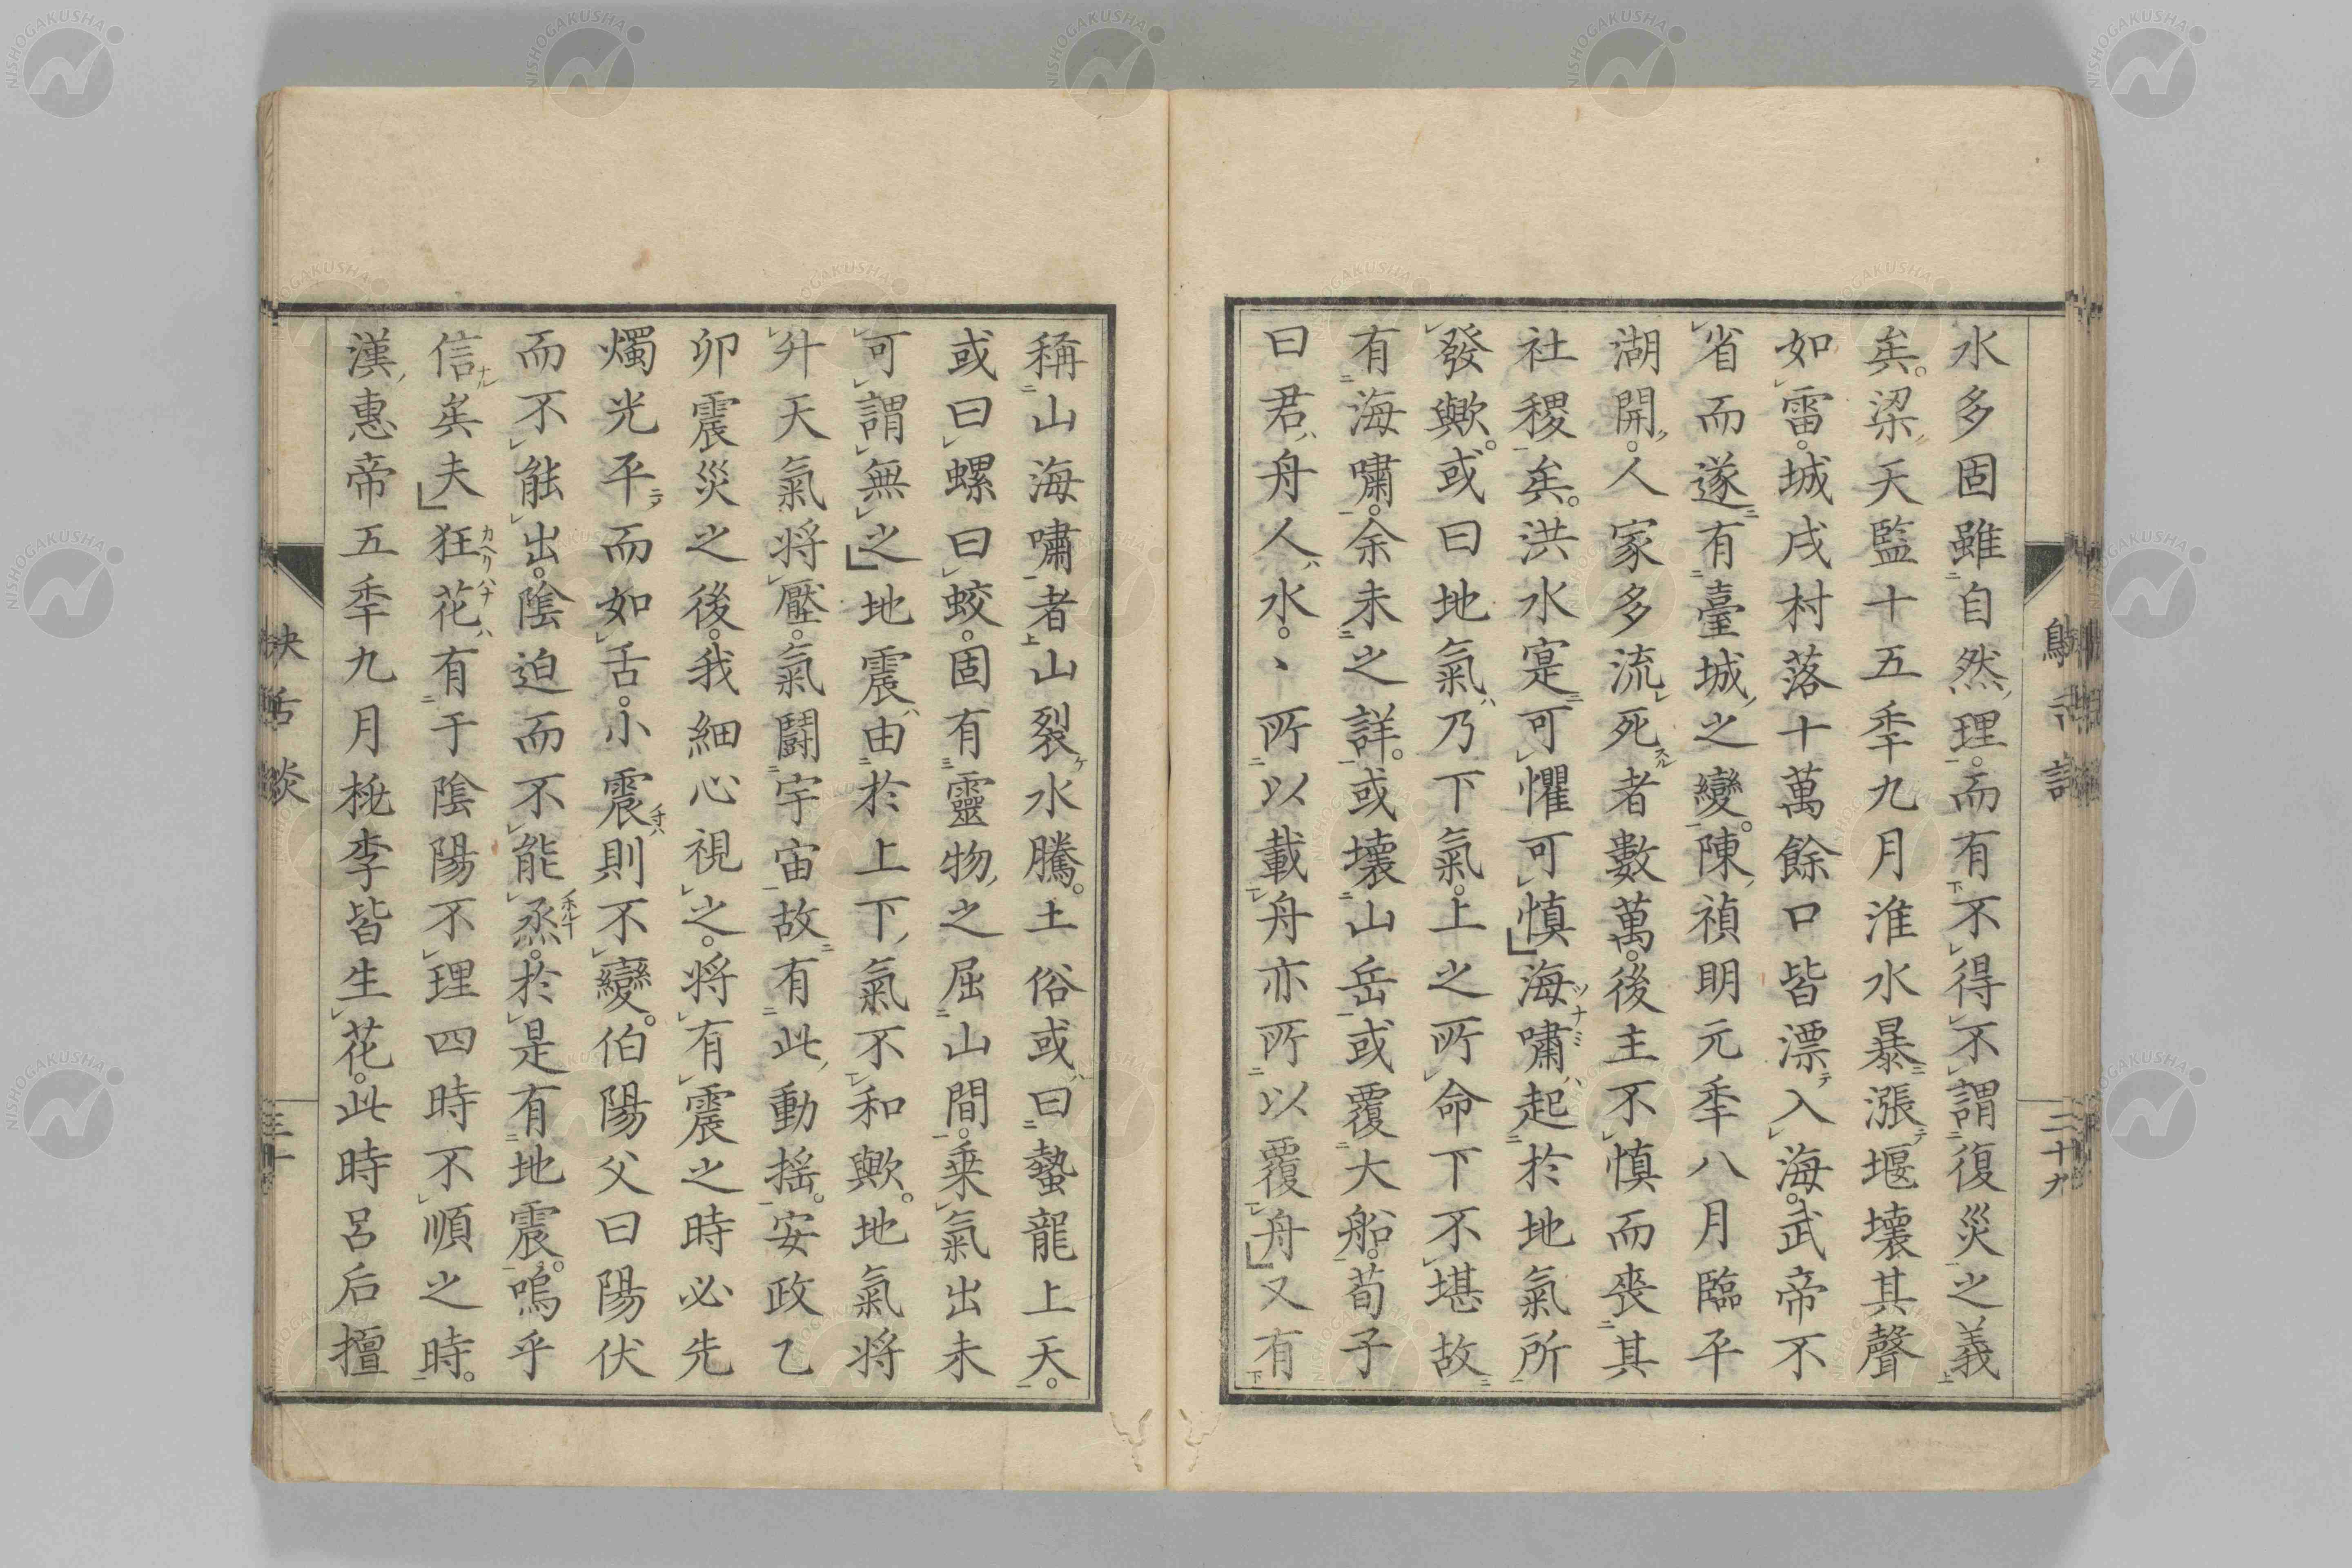 水多固雖自然理而有不得不謂復災之義
矣。梁天監十五季九月淮水暴漲堰壞其聲
如雷。城戌村落十萬餘口皆漂入海。武帝不
省而遂有臺城之變。陳禎明元季八月臨平
湖開。人家多流死者數萬。後主不慎而喪其
社稷矣。洪水寔可懼可慎海嘯起於地氣所
發歟。或曰地氣乃下氣。上之所命下不堪故
有海嘯。余未之詳。或壞山岳或覆大船。荀子
曰君舟人水。丶所以載舟亦所以覆舟又有
二十九
稱山海嘯者山裂水騰。土俗或曰蟄龍上天。
或曰螺曰蛟。固有靈物之屈山間。乗氣出未
可謂無之地震由於上下氣不和歟。地氣将
升天氣将壓。氣鬪宇宙故有此動揺。安政乙
卯震災之後。我細心視之。将有震之時必先
燭光平而如舌。小震則不變。伯陽父曰陽伏
而不能出。陰迫而不能烝。於是有地震。嗚乎
信矣夫狂花有于陰陽不理四時不順之時。
漢惠帝五季九月桃李皆生花。此時呂后擅